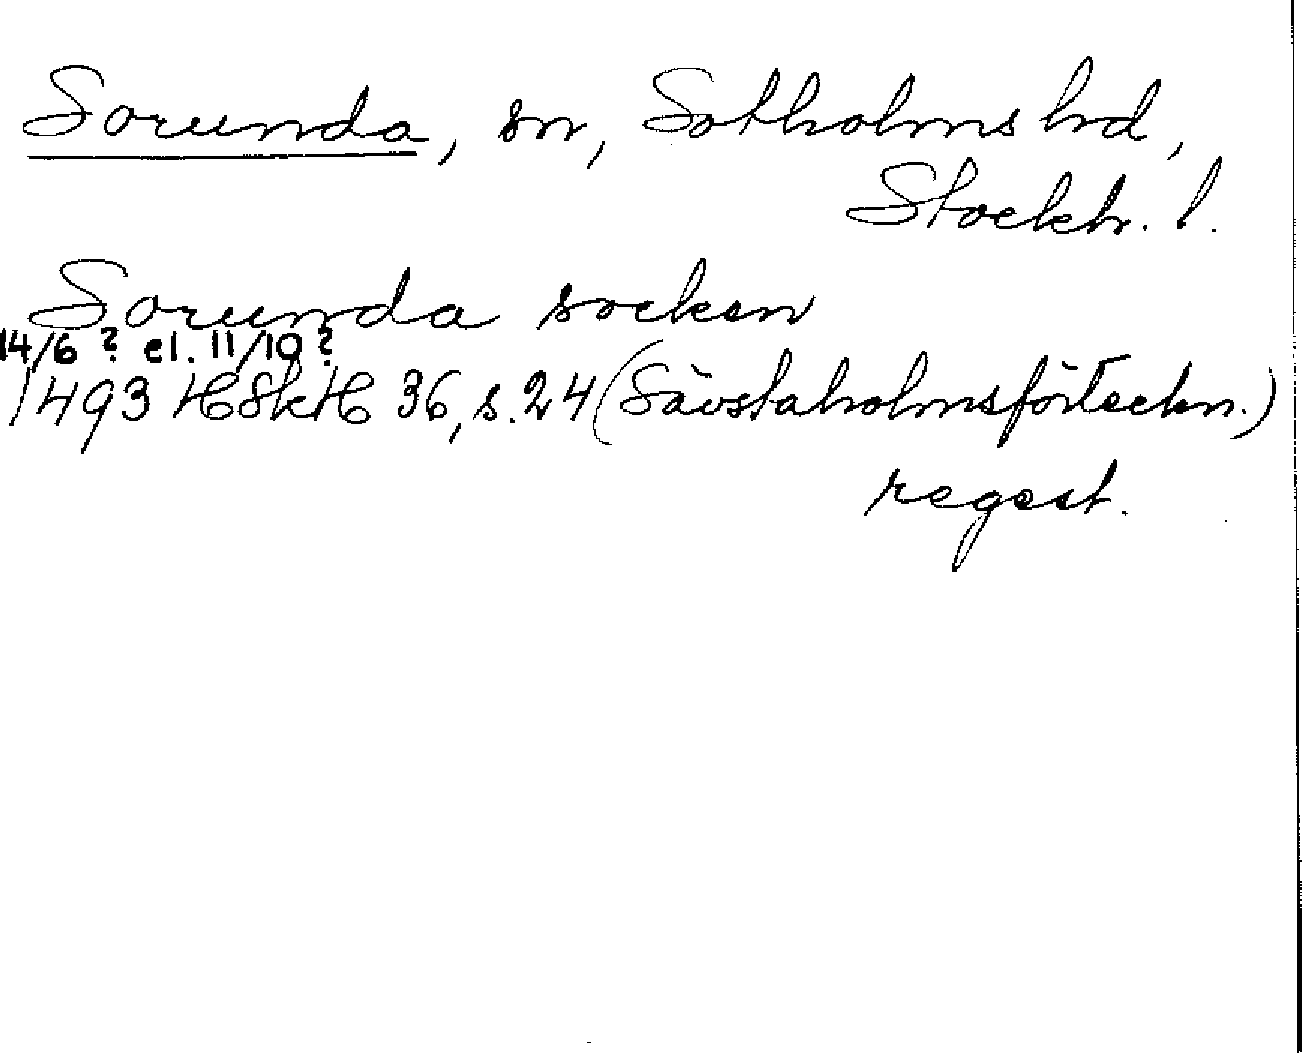 Sorunda, sn, Sotholms hd,
Stockh. l.
Sorunda socken
14/6 ? el. 11/10 ?
1493 HSkH 36, s. 24 (Sävstaholmsförteckn.)
regest.